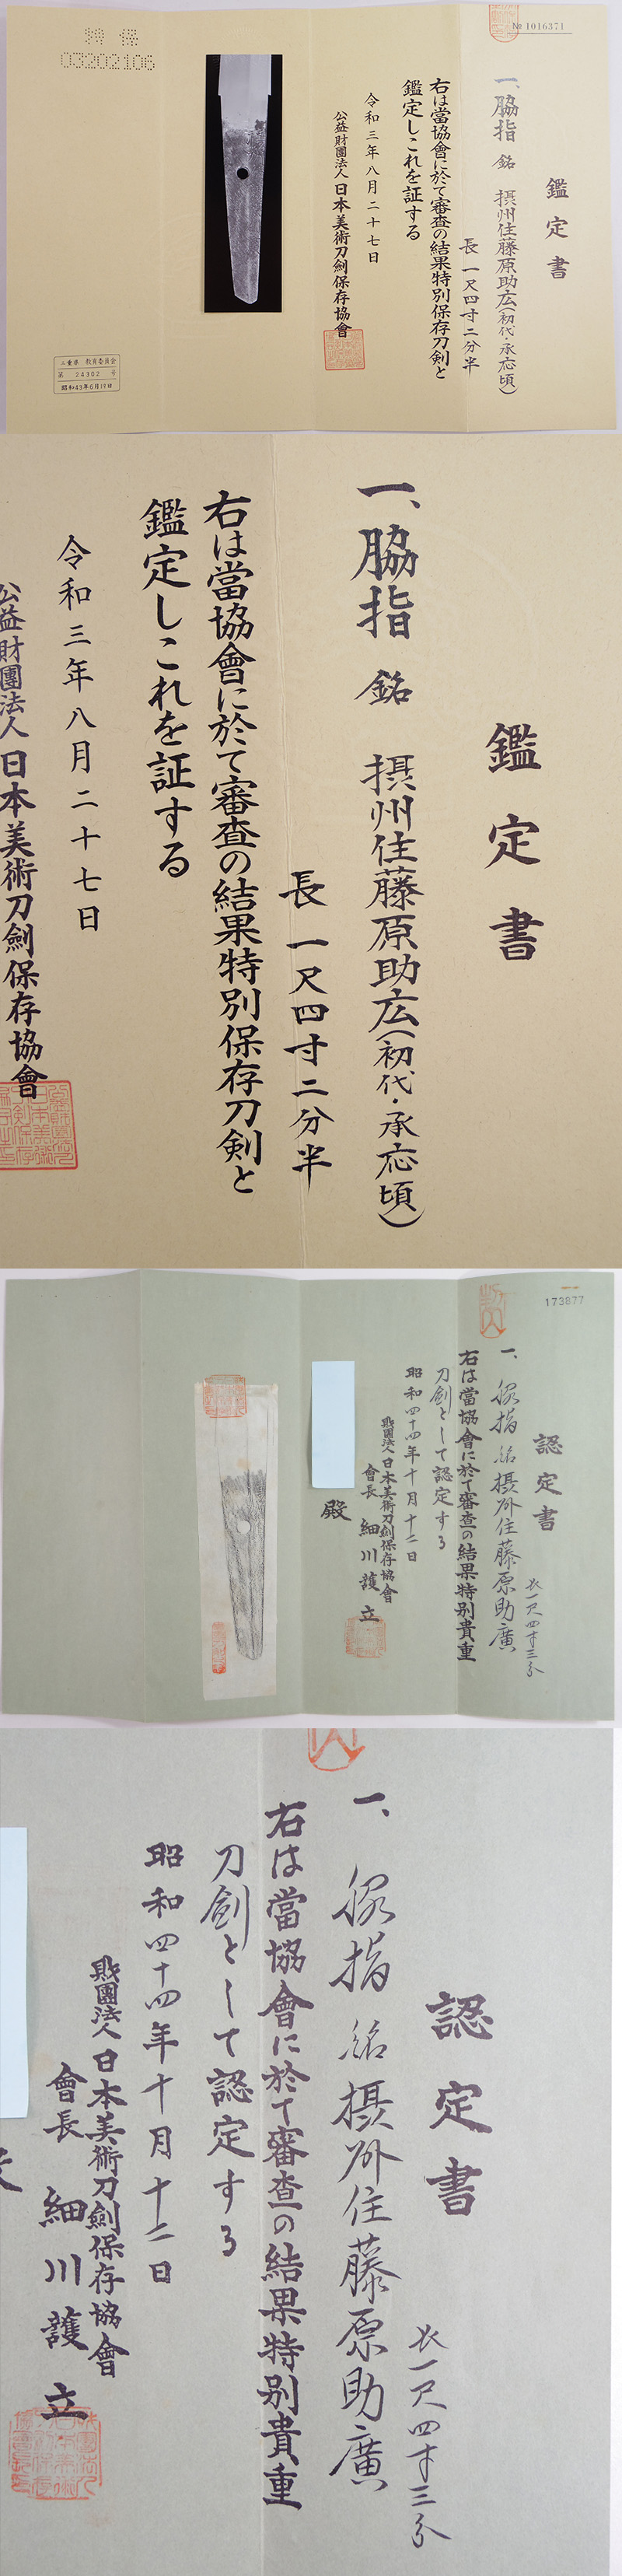 № 1016371
鑑定書
一、脇指 銘 摂州住藤原助広(初代・承応頃)
長一尺四寸二分半
右は當協會に於て審査の結果特別保存刀剣と
鑑定しこれを証する
令和三年八月二十七日
公益財團法人日本美術刀劍保存協會
特保
03202106
三重県 教育委員会
第 24302 号
昭和43年6月18日
鑑定書
一、脇指 銘 摂州住藤原助広(初代・承応頃)
長一尺四寸二分半
右は當協會に於て審査の結果特別保存刀剣と
鑑定しこれを証する
令和三年八月二十七日
公益財團法人日本美術刀劍保存協會
173877
認定書
一、脇指 銘 摂州住藤原助廣
長一尺四寸三分
右は當協會に於て審査の結果特別貴重
刀劍として認定する
昭和四十四年十月十二日
財團法人日本美術刀劍保存協會
會長 細川護立
殿
認定書
一、脇指 銘 摂州住藤原助廣
長一尺四寸三分
右は當協會に於て審査の結果特別貴重
刀劍として認定する
昭和四十四年十月十二日
財團法人日本美術刀劍保存協會
會長 細川護立